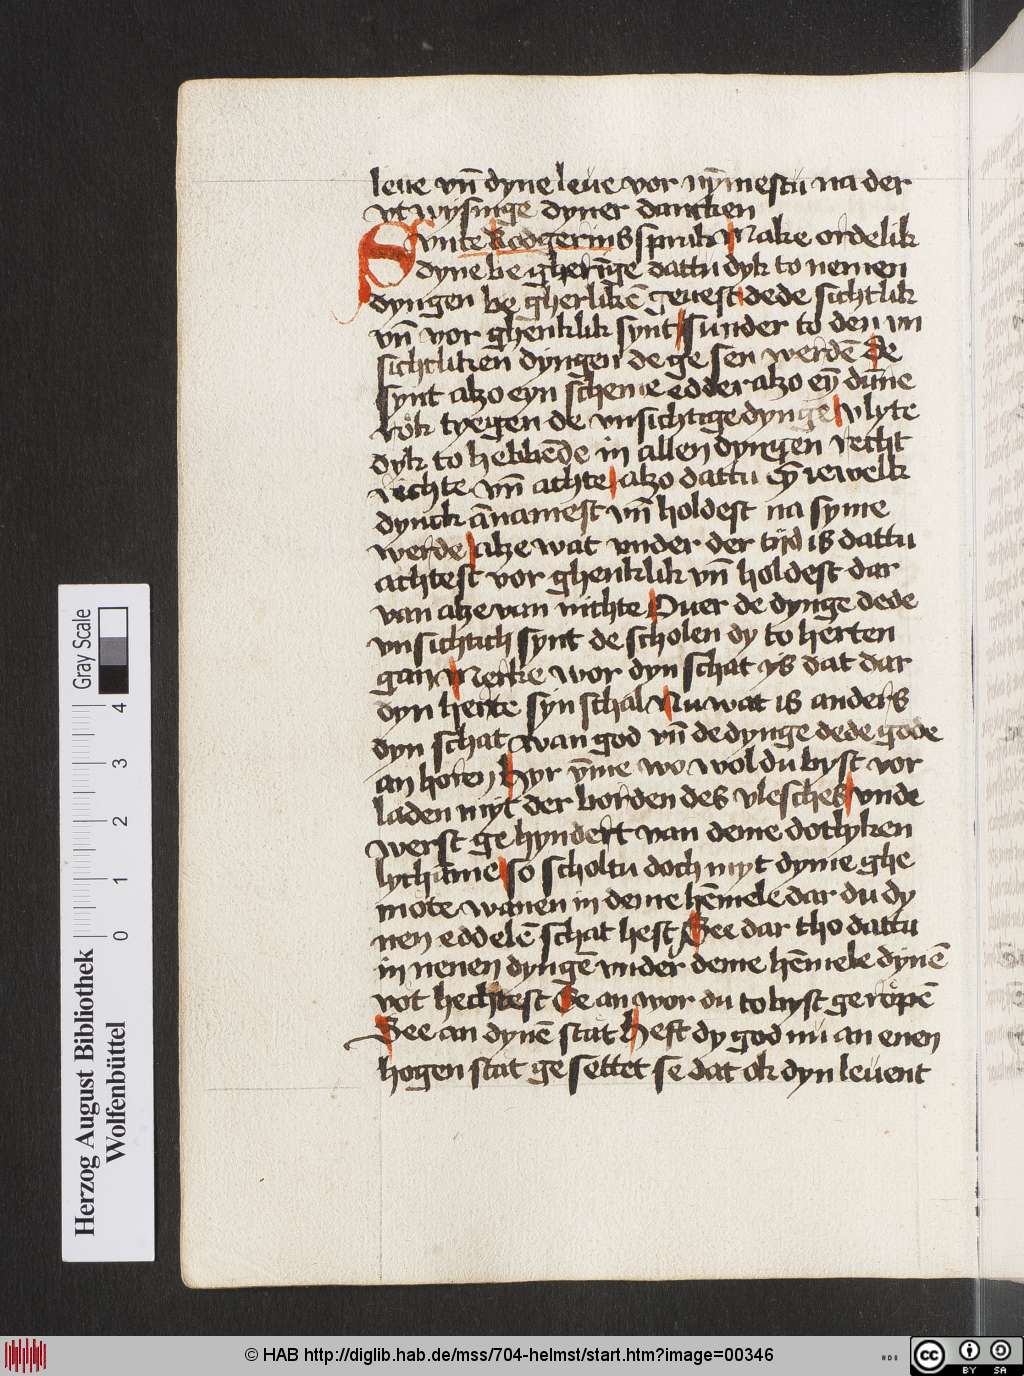 leue vn̄ dyne leue vor nȳmestu na der
vt wysinge dyner dancken
Sunte Rodgerius sprak Make ordelik
dyne be gherīge dattu dyk to nenen
dyngen be gherlikē geuest dede sichtlik
vn̄ vor ghenklik synt sunder to den vn
sichtliken dyngen de ge sen werdē De
synt alzo eyn scheme edder alzo eȳ dūne
rok tyegen de vnsichtige dynge vlyte
dyk to hebbēde in allen dyngen recht
richte vn̄ achte alzo dattu eȳ iewelk
dynck ānamest vn̄ holdest na syme
werde alze wat vnder der tijd is dattu
achtest vor ghenklik vn̄ holdest dar
van alze van nichte Ouer de dynge dede
vnsichtich synt de scholen dy to herten
gan Merke wor dyn schat ys dat dar
dyn herte syn schal Nu wat is anders
dyn schat wan god vn̄ de dynge dede gode
an horen Hyr ȳme wo wol du byst vor
laden myt der borden des vlesches vnde
werst ge hyndert van deme dotlyken
lychāme so scholtu doch myt dyme ghe
mote wanen in deme hēmele dar du dy
nen eddelē schat hest See dar tho dattu
in nenen dyngē vnder deme hēmele dynē
vot hechtest Se an wor du to byst ge ropē
See an dynē stat Heft dy god nu an enen
hogen stat ge settet se dat ok dyn leuent
Herzog August Bibliothek
Wolfenbüttel
0 1 2 3 4
Gray Scale
© HAB http://diglib.hab.de/mss/704-helmst/start.htm?image=00346
cc BY SA